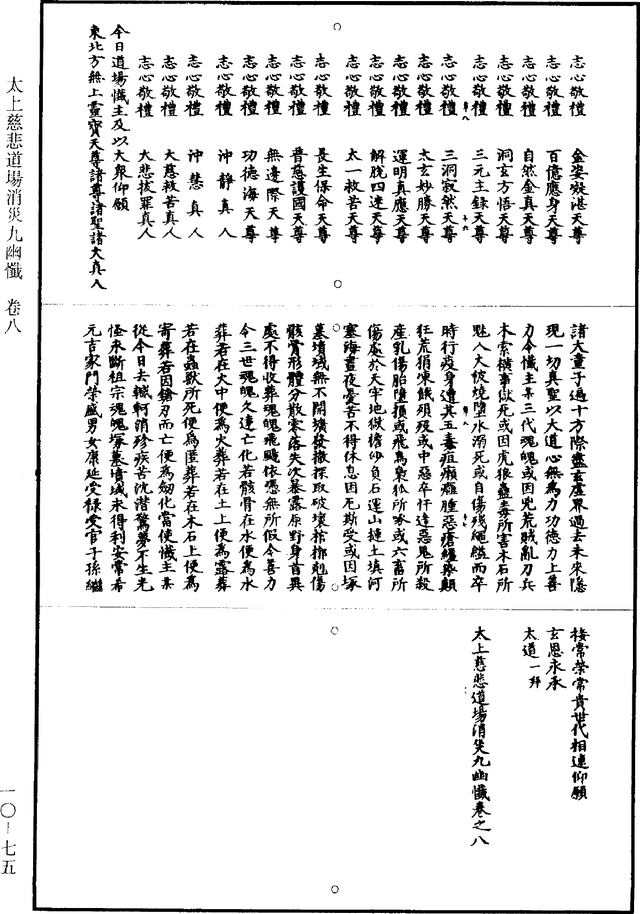 太上慈悲道場消災九幽懺　卷八
一〇—七五
志心敬禮　金姿凝湛天尊
志心敬禮　百億應身天尊
志心敬禮　自然金真天尊
志心敬禮　洞玄方悟天尊
志心敬禮　三元主錄天尊
志心敬禮　三洞寂然天尊
志心敬禮　太玄妙勝天尊
志心敬禮　運明真應天尊
志心敬禮　解脫四達天尊
志心敬禮　太一救苦天尊
志心敬禮　長生保命天尊
志心敬禮　普慈護國天尊
志心敬禮　無邊際天尊
志心敬禮　功德海天尊
志心敬禮　沖靜真人
志心敬禮　沖慧真人
志心敬禮　大慈救苦真人
志心敬禮　大悲拔罪真人
今日道場懺主及以大衆仰願
東北方無上靈寶天尊諸尊諸聖諸大真人
諸大童子過十方際盡玄虛界過去未來隱
現一切真聖以大道心無為力功德力上善
力令懺主某三代魂魄或因兇荒賊亂刀兵
木索橫事獄死或因虎狼蠱毒所害木石所
魅入火被燒墮水溺死或自傷殘繩縊而卒
時行疫身遭其五毒疽癩癰腫惡瘡纏染顛
狂荒狷凍餓殞殁或中惡卒忤逢惡鬼所殺
產乳傷胎墮損或飛鳥梟狐所啄或六畜所
傷處於天牢地獄擔砂負石運山揵土填河
塞海晝夜憂苦不得休息因厄斯受或因塚
墓墳域無不開壙發撤探取破壞棺槨剋傷
骸骨形體分散零落失次暴露原野身首異
處不得收葬魂魄飛颺依憑無所假令善力
今三世魂魄久遠亡化若骸骨在水便為水
葬若在火中便為火葬若在土上便為露葬
若在蟲獸所死便為匿葬若在木石上便為
寄葬若因鎗刃而亡便為劒化當使懺主某
從今日去轗軻消殄疾苦沈潛驚夢不生光
怪永斷祖宗魂魄塚墓墳域永得利安常希
元吉家門榮盛男女康延受祿受官子孫繼
接常榮常貴世代相連仰願
玄恩永承
太道一拜
太上慈悲道場消災九幽懺卷之八